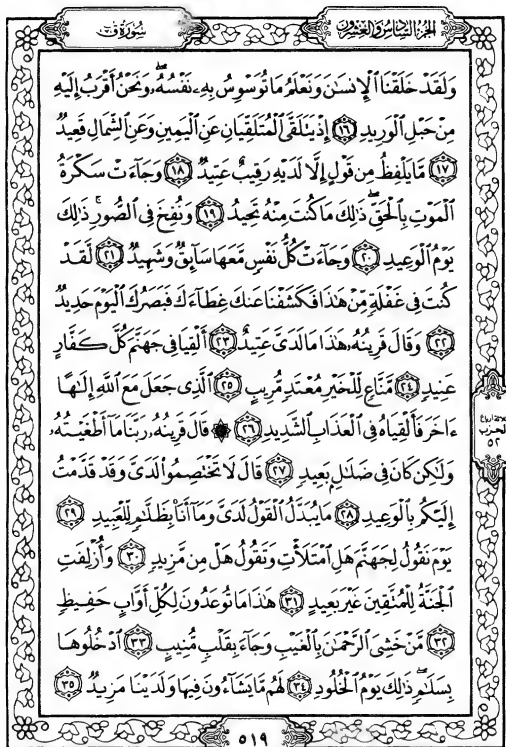 سُورَةُ قٓ
الجزء السادس والعشرون
وَلَقَدْ خَلَقْنَا ٱلْإِنسَٰنَ وَنَعْلَمُ مَا تُوَسْوِسُ بِهِۦ نَفْسُهُۥ وَنَحْنُ أَقْرَبُ إِلَيْهِ
مِنْ حَبْلِ ٱلْوَرِيدِ ١٦ إِذْ يَتَلَقَّى ٱلْمُتَلَقِّيَانِ عَنِ ٱلْيَمِينِ وَعَنِ ٱلشِّمَالِ قَعِيدٌ
١٧ مَّا يَلْفِظُ مِن قَوْلٍ إِلَّا لَدَيْهِ رَقِيبٌ عَتِيدٌ ١٨ وَجَآءَتْ سَكْرَةُ
ٱلْمَوْتِ بِٱلْحَقِّ ۖ ذَٰلِكَ مَا كُنتَ مِنْهُ تَحِيدُ ١٩ وَنُفِخَ فِى ٱلصُّورِ ۚ ذَٰلِكَ
يَوْمُ ٱلْوَعِيدِ ٢٠ وَجَآءَتْ كُلُّ نَفْسٍ مَّعَهَا سَآئِقٌ وَشَهِيدٌ ٢١ لَّقَدْ
كُنتَ فِى غَفْلَةٍ مِّنْ هَٰذَا فَكَشَفْنَا عَنكَ غِطَآءَكَ فَبَصَرُكَ ٱلْيَوْمَ حَدِيدٌ
٢٢ وَقَالَ قَرِينُهُۥ هَٰذَا مَا لَدَىَّ عَتِيدٌ ٢٣ أَلْقِيَا فِى جَهَنَّمَ كُلَّ كَفَّارٍ
عَنِيدٍ ٢٤ مَّنَّاعٍ لِّلْخَيْرِ مُعْتَدٍ مُّرِيبٍ ٢٥ ٱلَّذِى جَعَلَ مَعَ ٱللَّهِ إِلَٰهًا
ءَاخَرَ فَأَلْقِيَاهُ فِى ٱلْعَذَابِ ٱلشَّدِيدِ ٢٦ ۞ قَالَ قَرِينُهُۥ رَبَّنَا مَآ أَطْغَيْتُهُۥ
وَلَٰكِن كَانَ فِى ضَلَٰلٍۭ بَعِيدٍ ٢٧ قَالَ لَا تَخْتَصِمُوا۟ لَدَىَّ وَقَدْ قَدَّمْتُ
إِلَيْكُم بِٱلْوَعِيدِ ٢٨ مَا يُبَدَّلُ ٱلْقَوْلُ لَدَىَّ وَمَآ أَنَا۠ بِظَلَّٰمٍ لِّلْعَبِيدِ ٢٩
يَوْمَ نَقُولُ لِجَهَنَّمَ هَلِ ٱمْتَلَأْتِ وَتَقُولُ هَلْ مِن مَّزِيدٍ ٣٠ وَأُزْلِفَتِ
ٱلْجَنَّةُ لِلْمُتَّقِينَ غَيْرَ بَعِيدٍ ٣١ هَٰذَا مَا تُوعَدُونَ لِكُلِّ أَوَّابٍ حَفِيظٍ
٣٢ مَّنْ خَشِىَ ٱلرَّحْمَٰنَ بِٱلْغَيْبِ وَجَآءَ بِقَلْبٍ مُّنِيبٍ ٣٣ ٱدْخُلُوهَا
بِسَلَٰمٍ ۖ ذَٰلِكَ يَوْمُ ٱلْخُلُودِ ٣٤ لَهُم مَّا يَشَآءُونَ فِيهَا وَلَدَيْنَا مَزِيدٌ ٣٥
الحزب
٥٢
٥١٩